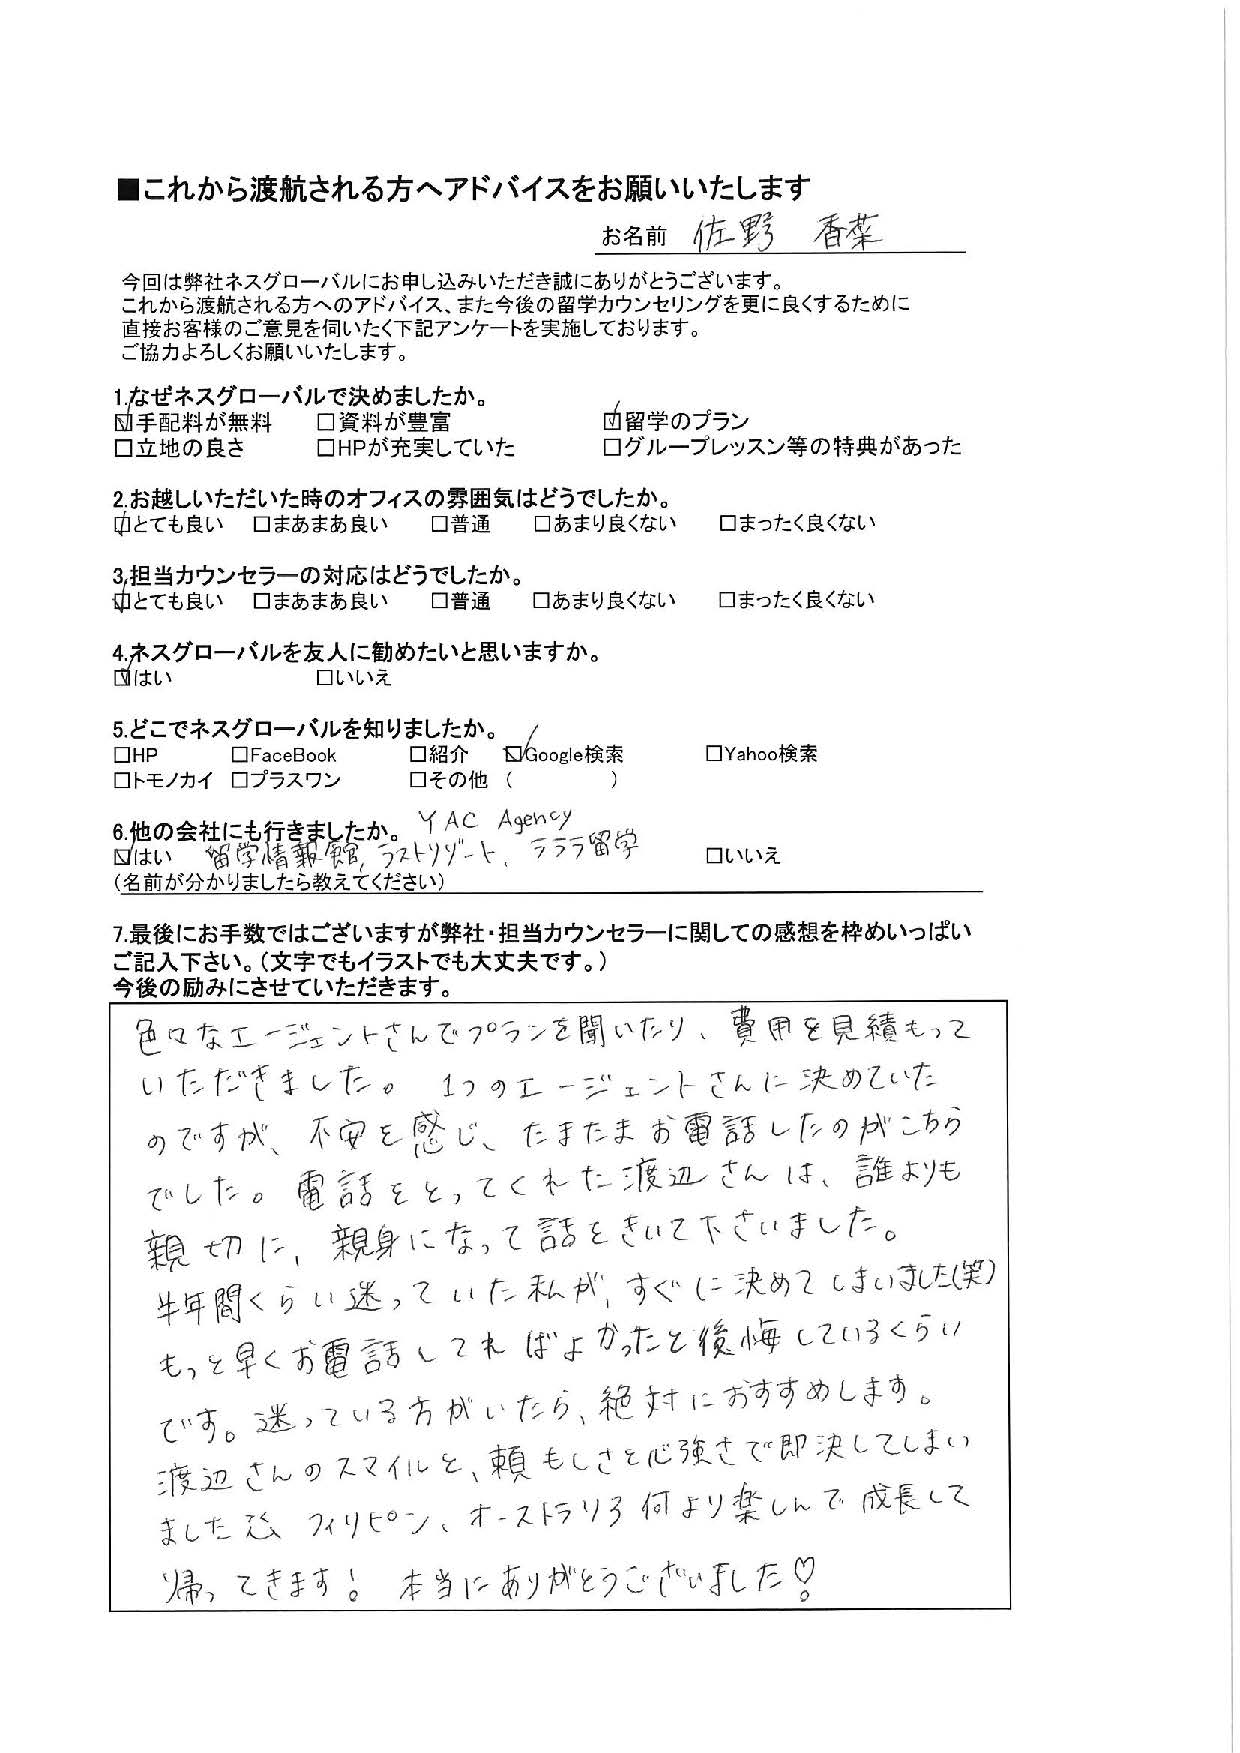 ■これから渡航される方へアドバイスをお願いいたします
お名前 佐野 香菜
今回は弊社ネスグローバルにお申し込みいただき誠にありがとうございます。
これから渡航される方へのアドバイス、また今後の留学カウンセリングを更に良くするために
直接お客様のご意見を伺いたく下記アンケートを実施しております。
ご協力よろしくお願いいたします。
1.なぜネスグローバルで決めましたか。
☑手配料が無料 □資料が豊富 ☑留学のプラン
□立地の良さ □HPが充実していた □グループレッスン等の特典があった
2.お越しいただいた時のオフィスの雰囲気はどうでしたか。
☑とても良い □まあまあ良い □普通 □あまり良くない □まったく良くない
3.担当カウンセラーの対応はどうでしたか。
☑とても良い □まあまあ良い □普通 □あまり良くない □まったく良くない
4.ネスグローバルを友人に勧めたいと思いますか。
☑はい □いいえ
5.どこでネスグローバルを知りましたか。
□HP □FaceBook □紹介 ☑Google検索 □Yahoo検索
□トモノカイ □プラスワン □その他 ( )
6.他の会社にも行きましたか。 YAC Agency
☑はい 留学情報館, ラストリゾート、テララ留学 □いいえ
(名前が分かりましたら教えてください)
7.最後にお手数ではございますが弊社・担当カウンセラーに関しての感想を枠めいっぱい
ご記入下さい。(文字でもイラストでも大丈夫です。)
今後の励みにさせていただきます。
色々なエージェントさんでプランを聞いたり、費用を見積もって
いただきました。 1つのエージェントさんに決めていた
のですが、不安を感じ、たまたまお電話したのがこちら
でした。電話をとってくれた渡辺さんは、誰よりも
親切に、親身になって話をきいて下さいました。
半年間くらい迷っていた私が、すぐに決めてしまいました(笑)
もっと早くお電話してればよかったと後悔しているくらい
です。迷っている方がいたら、絶対におすすめします。
渡辺さんのスマイルと、頼もしさと心強さで即決してしまい
ました フィリピン、オーストラリア何より楽しんで成長して
帰ってきます! 本当にありがとうございました♡